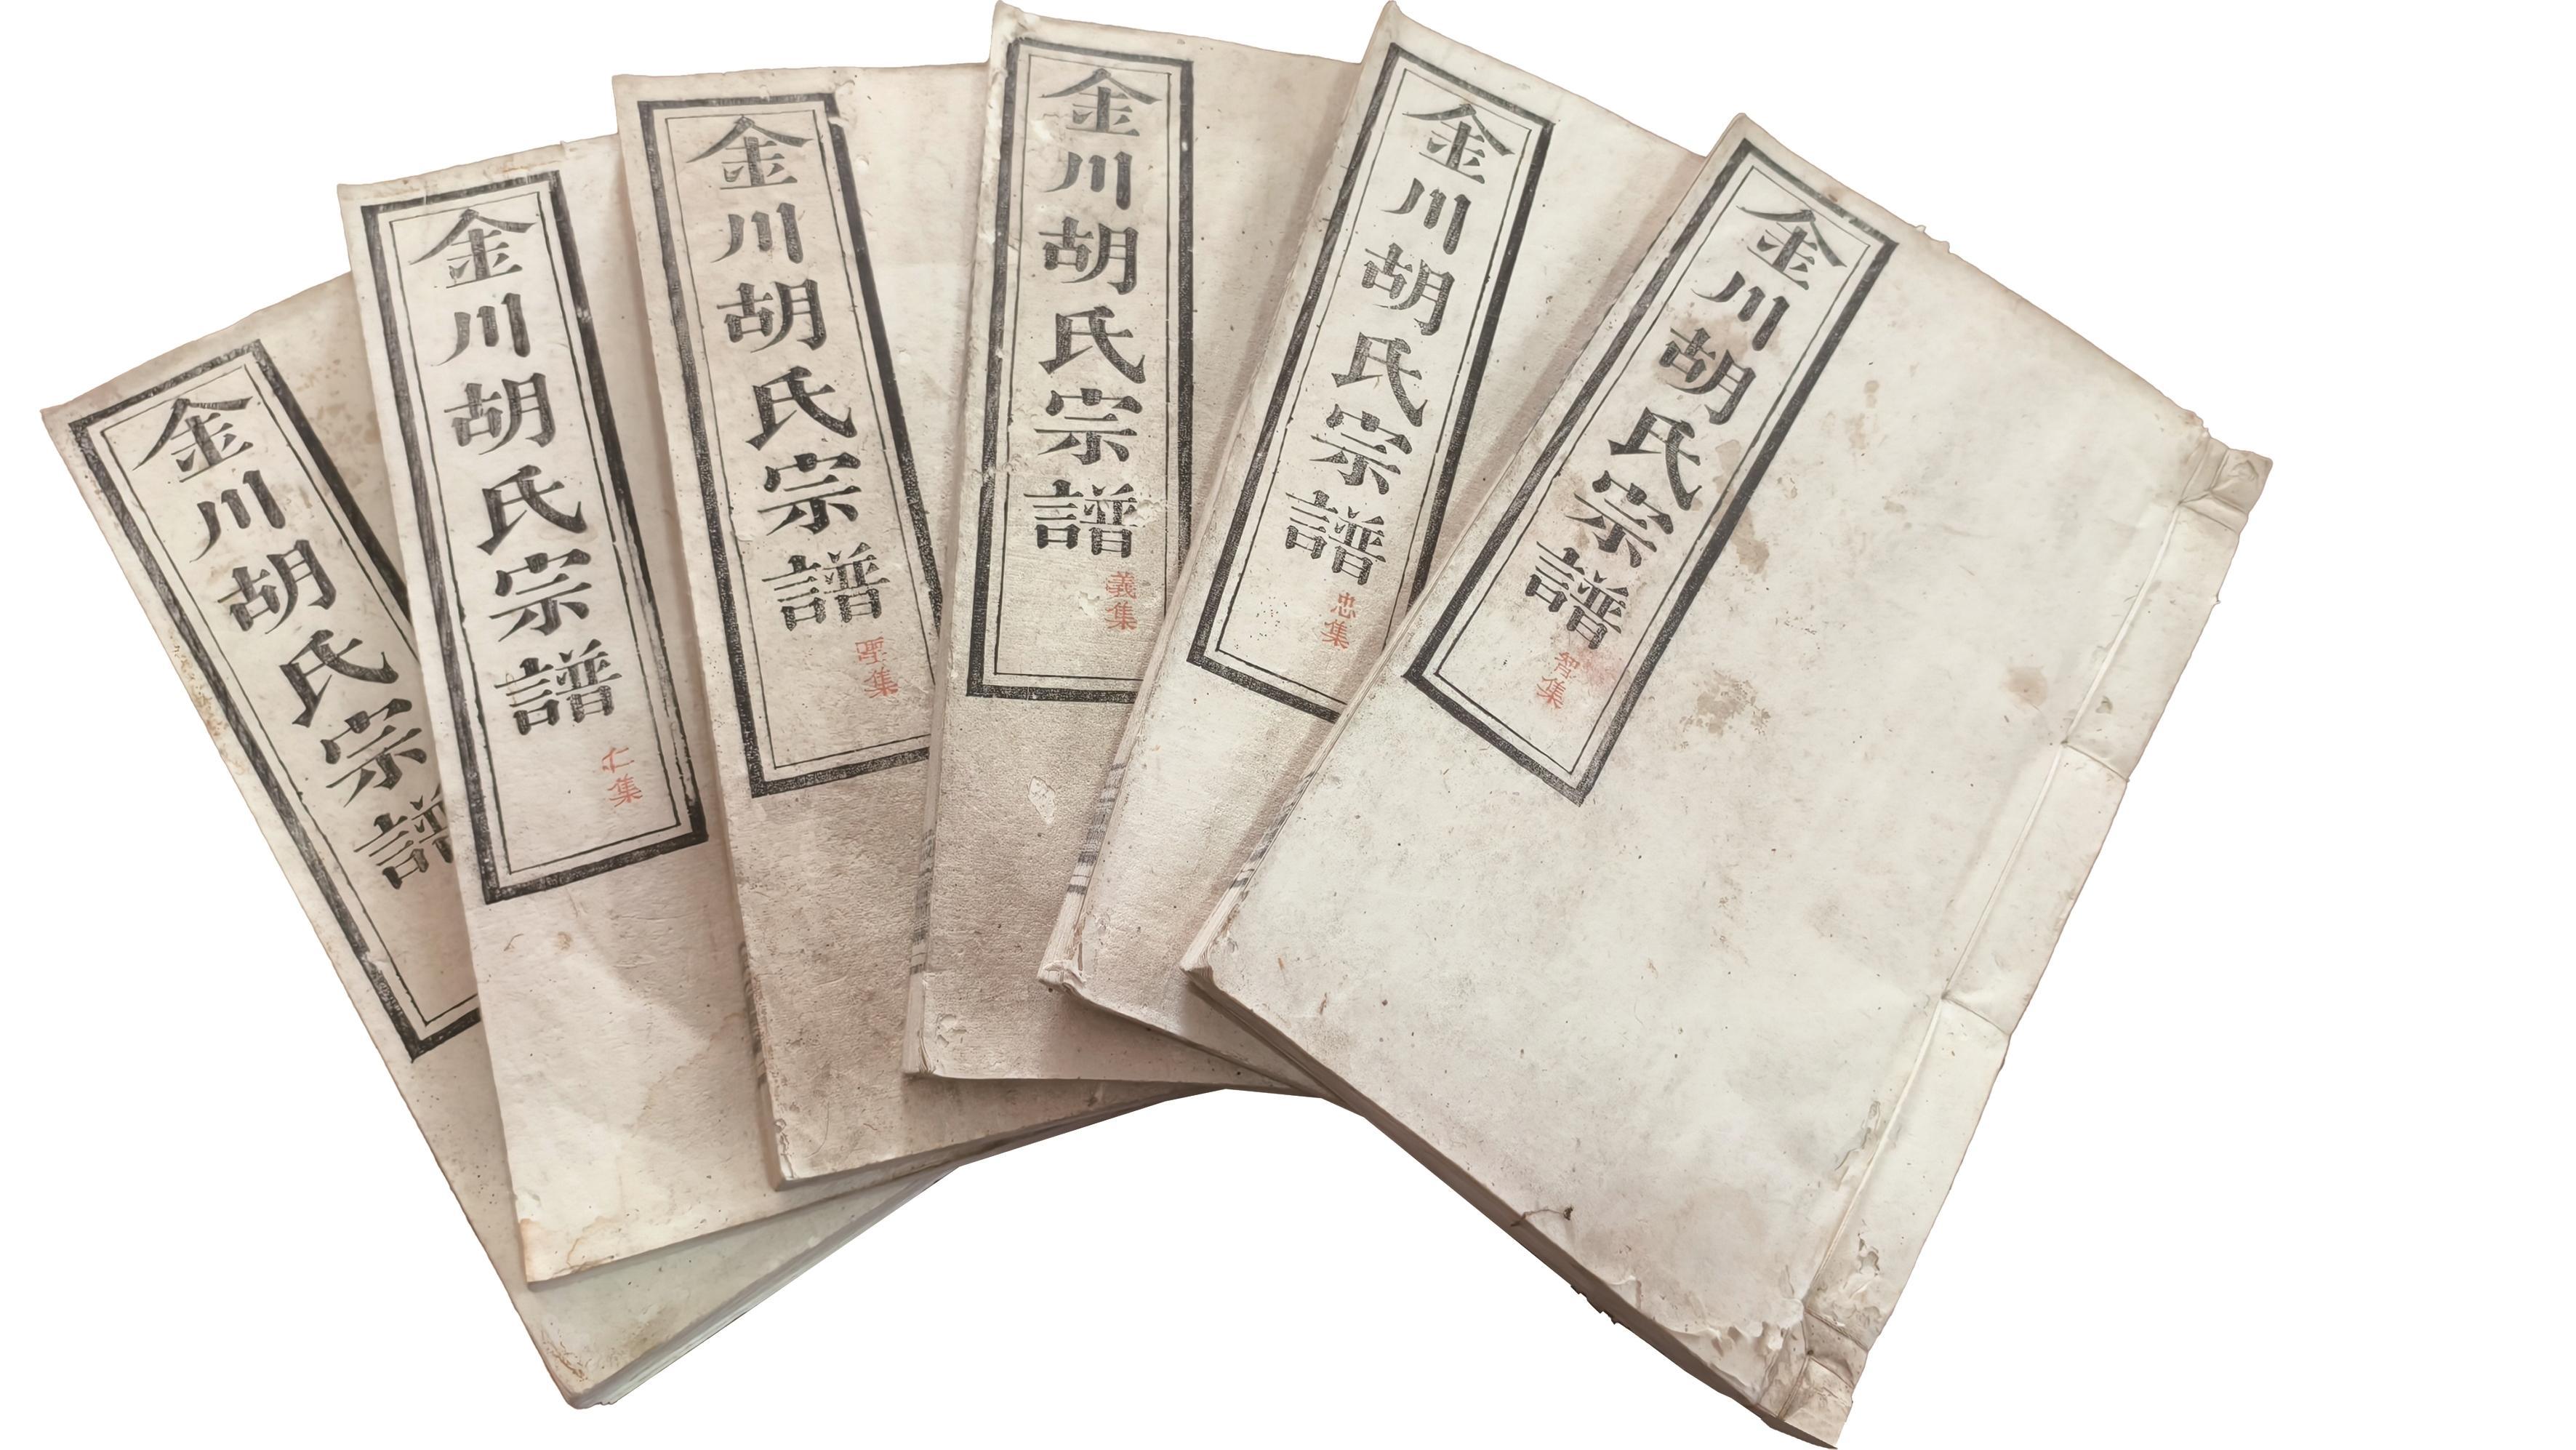 金川胡氏宗譜
金川胡氏宗譜
仁集
金川胡氏宗譜
聖集
金川胡氏宗譜
義集
金川胡氏宗譜
忠集
金川胡氏宗譜
智集